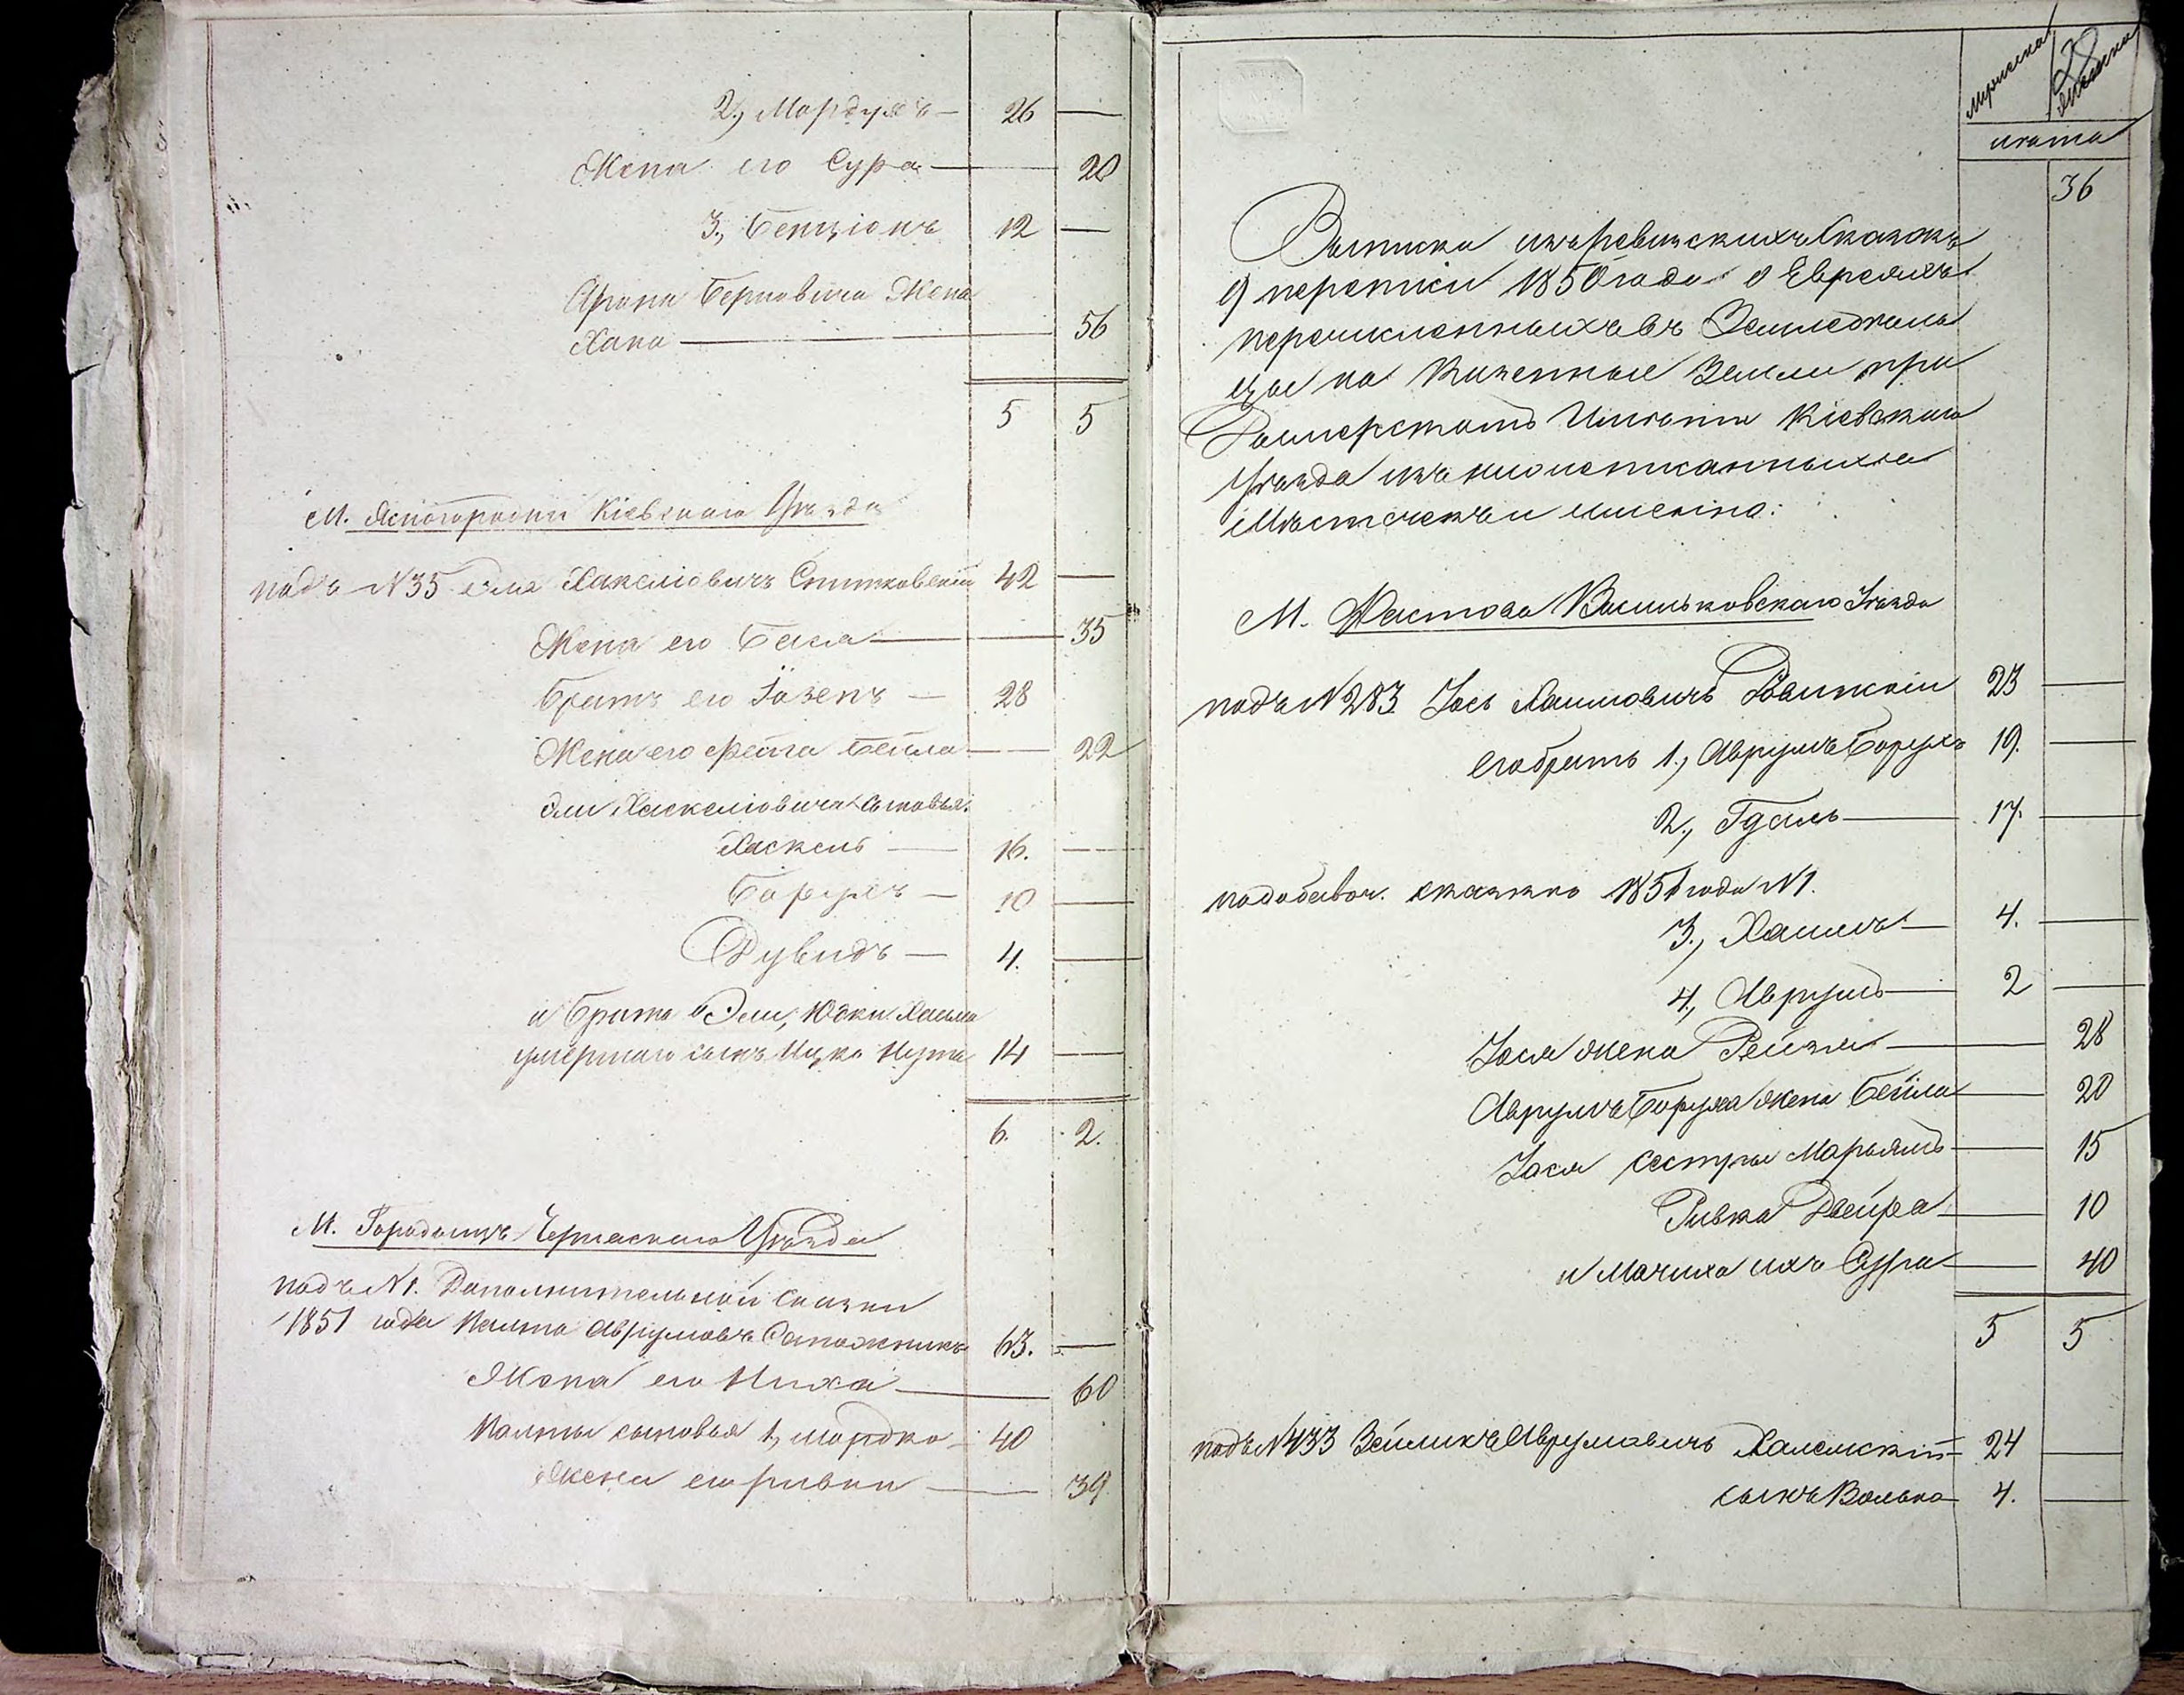 2., Мордухъ — 26 —
Жена его Сура — 20
3., Бенціонъ 12 —
Арона Берковича Жена
Хана — 56
5 5
М. Ясногородки Кіевскаго Уѣзда
подъ N 35 Эля Хаскеліовичъ Спитковскій 42 —
Жена его Бася — 35
Братъ его Іозепъ — 28
Жена его Фейга Бейла — 22
Эли Хаскеліовича Сыновья:
Хаскель — 16. —
Борухъ — 10 —
Дувидъ — 4. —
и Брата Эли, Юдки Хаима
умершаго сынъ Ицко Нута 14 —
6. 2.
М. Городищъ Черкаскаго Уѣзда
подъ N 1. Дополнительной Сказки
1851 года Палта Аврумовъ Сапожникъ 63. —
Жена его Ниха — 60
Палты сыновья 1., Мордко — 40
Жена его Ривка — 39
мужеска женска
лѣта
36
Выписка изъ ревизскихъ Сказокъ
9 переписи 1850 года о Евреяхъ
перечисленныхъ въ Земледѣль
цы на Казенные Земли при
Уѣзда изъ нижеписанныхъ
Мѣстечекъ и именно:
М. Фастова Васильковскаго Уѣзда
подъ N 283. Іось Хаимовичъ 23 —
его братъ 1., Аврумъ Борухъ 19. —
2., Гдаль — 17. —
по добавоч. сказкѣ 1851 года N 1.
3., Хаимъ — 4. —
4., Аврумъ — 2 —
Іося жена Рейзя — 28
Аврумъ Боруха жена Бейла — 20
Іося сестры Марьямъ — 15
Ривка Двейра — 10
и Мачиха ихъ Сура — 40
5 5
подъ N 433 Зейликъ Аврумовичъ Халемскій — 24 —
сынъ Волько 4. —